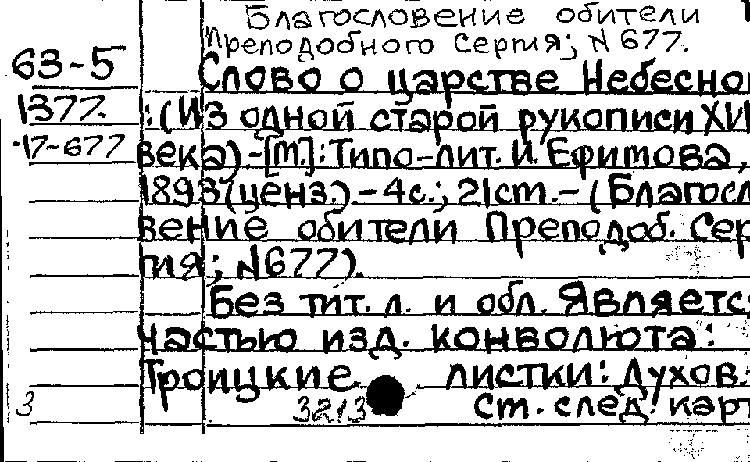 Благословение обители
Преподобного Сергия; N 677.
63-5
Слово о царстве Небесно
1377.
: (Из одной старой рукописи XVI
-17-677
века) - [М.]: Типо-лит. И. Ефимова,
1893 (ценз.). - 4с.; 21см. - (Благосл
вение обители Преподоб. Сер
гия; N677).
Без тит. л. и обл. Являетс
частью изд. конволюта:
Троицкие листки: Духов.
3
3213
ст. след. карт